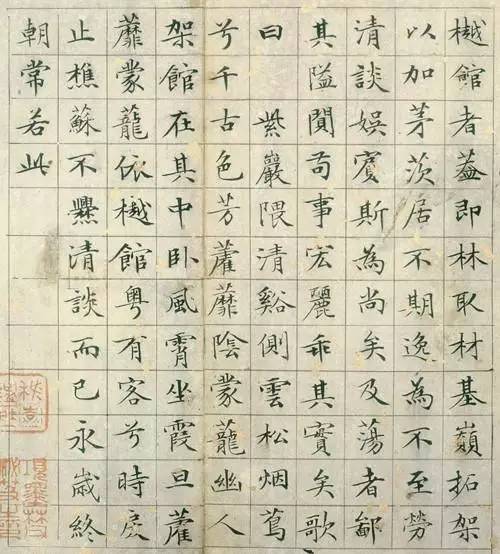 樾館者葢即林取材基巔拓架
以加茅茨居不期逸為不至勞
清談娛賓斯為尚矣及蕩者鄙
其隘閴苟事宏麗乖其實矣歌
曰 紫巖隈清谿側雲松烟蔦
兮千古色芳藿蘼陰蒙蘢幽人
架館在其中卧風霄坐霞旦藿
蘼蒙蘢依樾館粵有客兮時戾
止樵蘇不爨清談而已永歲終
朝常若此